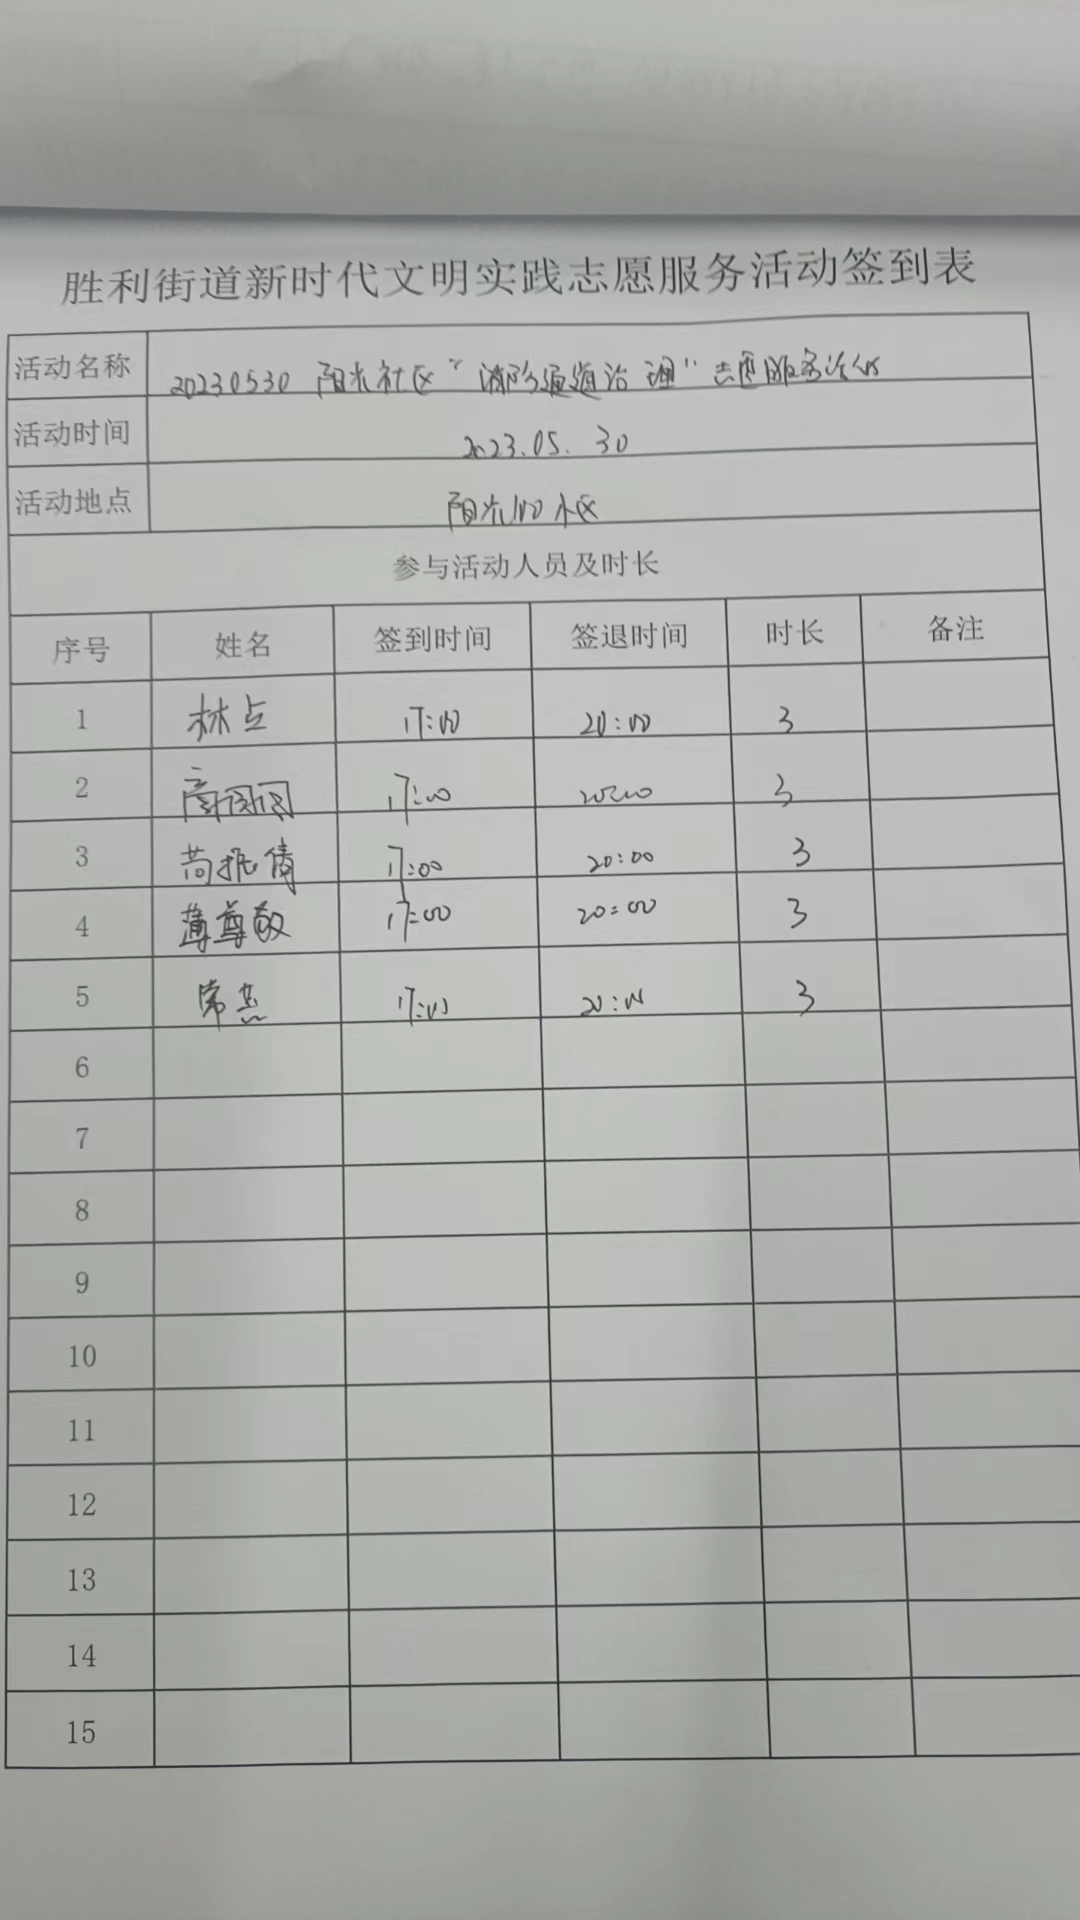 胜利街道新时代文明实践志愿服务活动签到表
活动名称 20230530 阳光社区“消防通道治理”志愿服务活动
活动时间 2023.05.30
活动地点 阳光100小区
参与活动人员及时长
序号 姓名 签到时间 签退时间 时长 备注
1 林占 17:00 20:00 3
2 商闵闵 17:00 20:00 3
3 苟振倩 17:00 20:00 3
4 薄尊敬 17:00 20:00 3
5 常燕 17:00 20:00 3
6
7
8
9
10
11
12
13
14
15